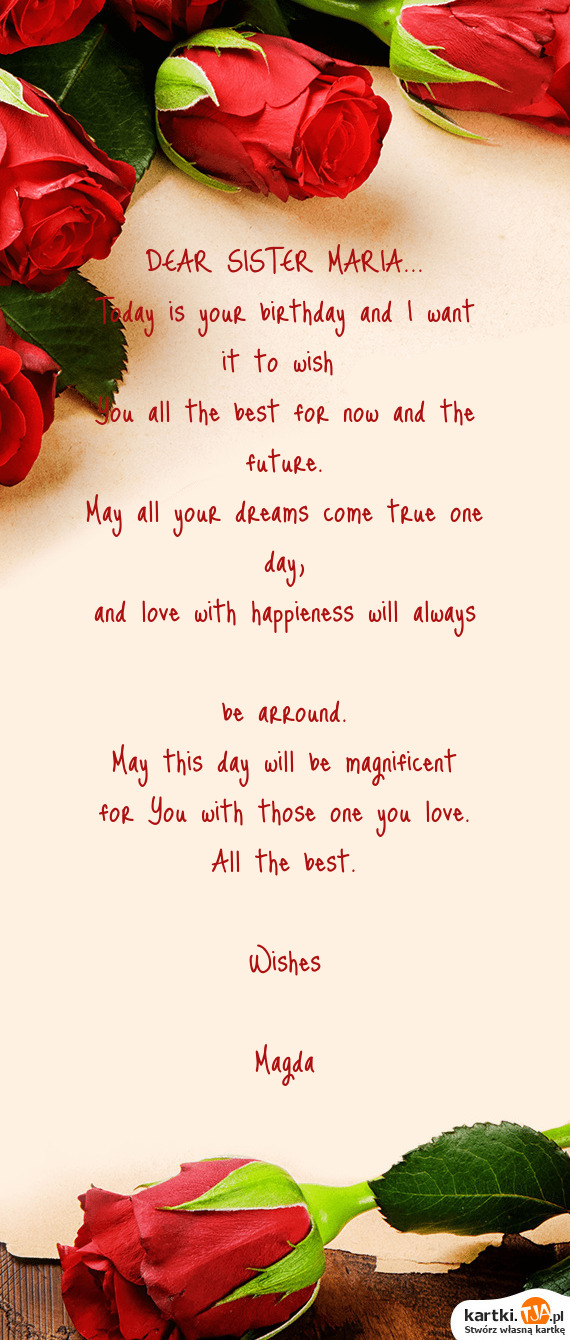 DEAR SISTER MARIA...
Today is your birthday and I want
it to wish
You all the best for now and the
future.
May all your dreams come true one
day,
and love with happieness will always
be arround.
May this day will be magnificent
for You with those one you love.
All the best.
Wishes
Magda
kartki.TJA.pl
Stwórz własną kartkę